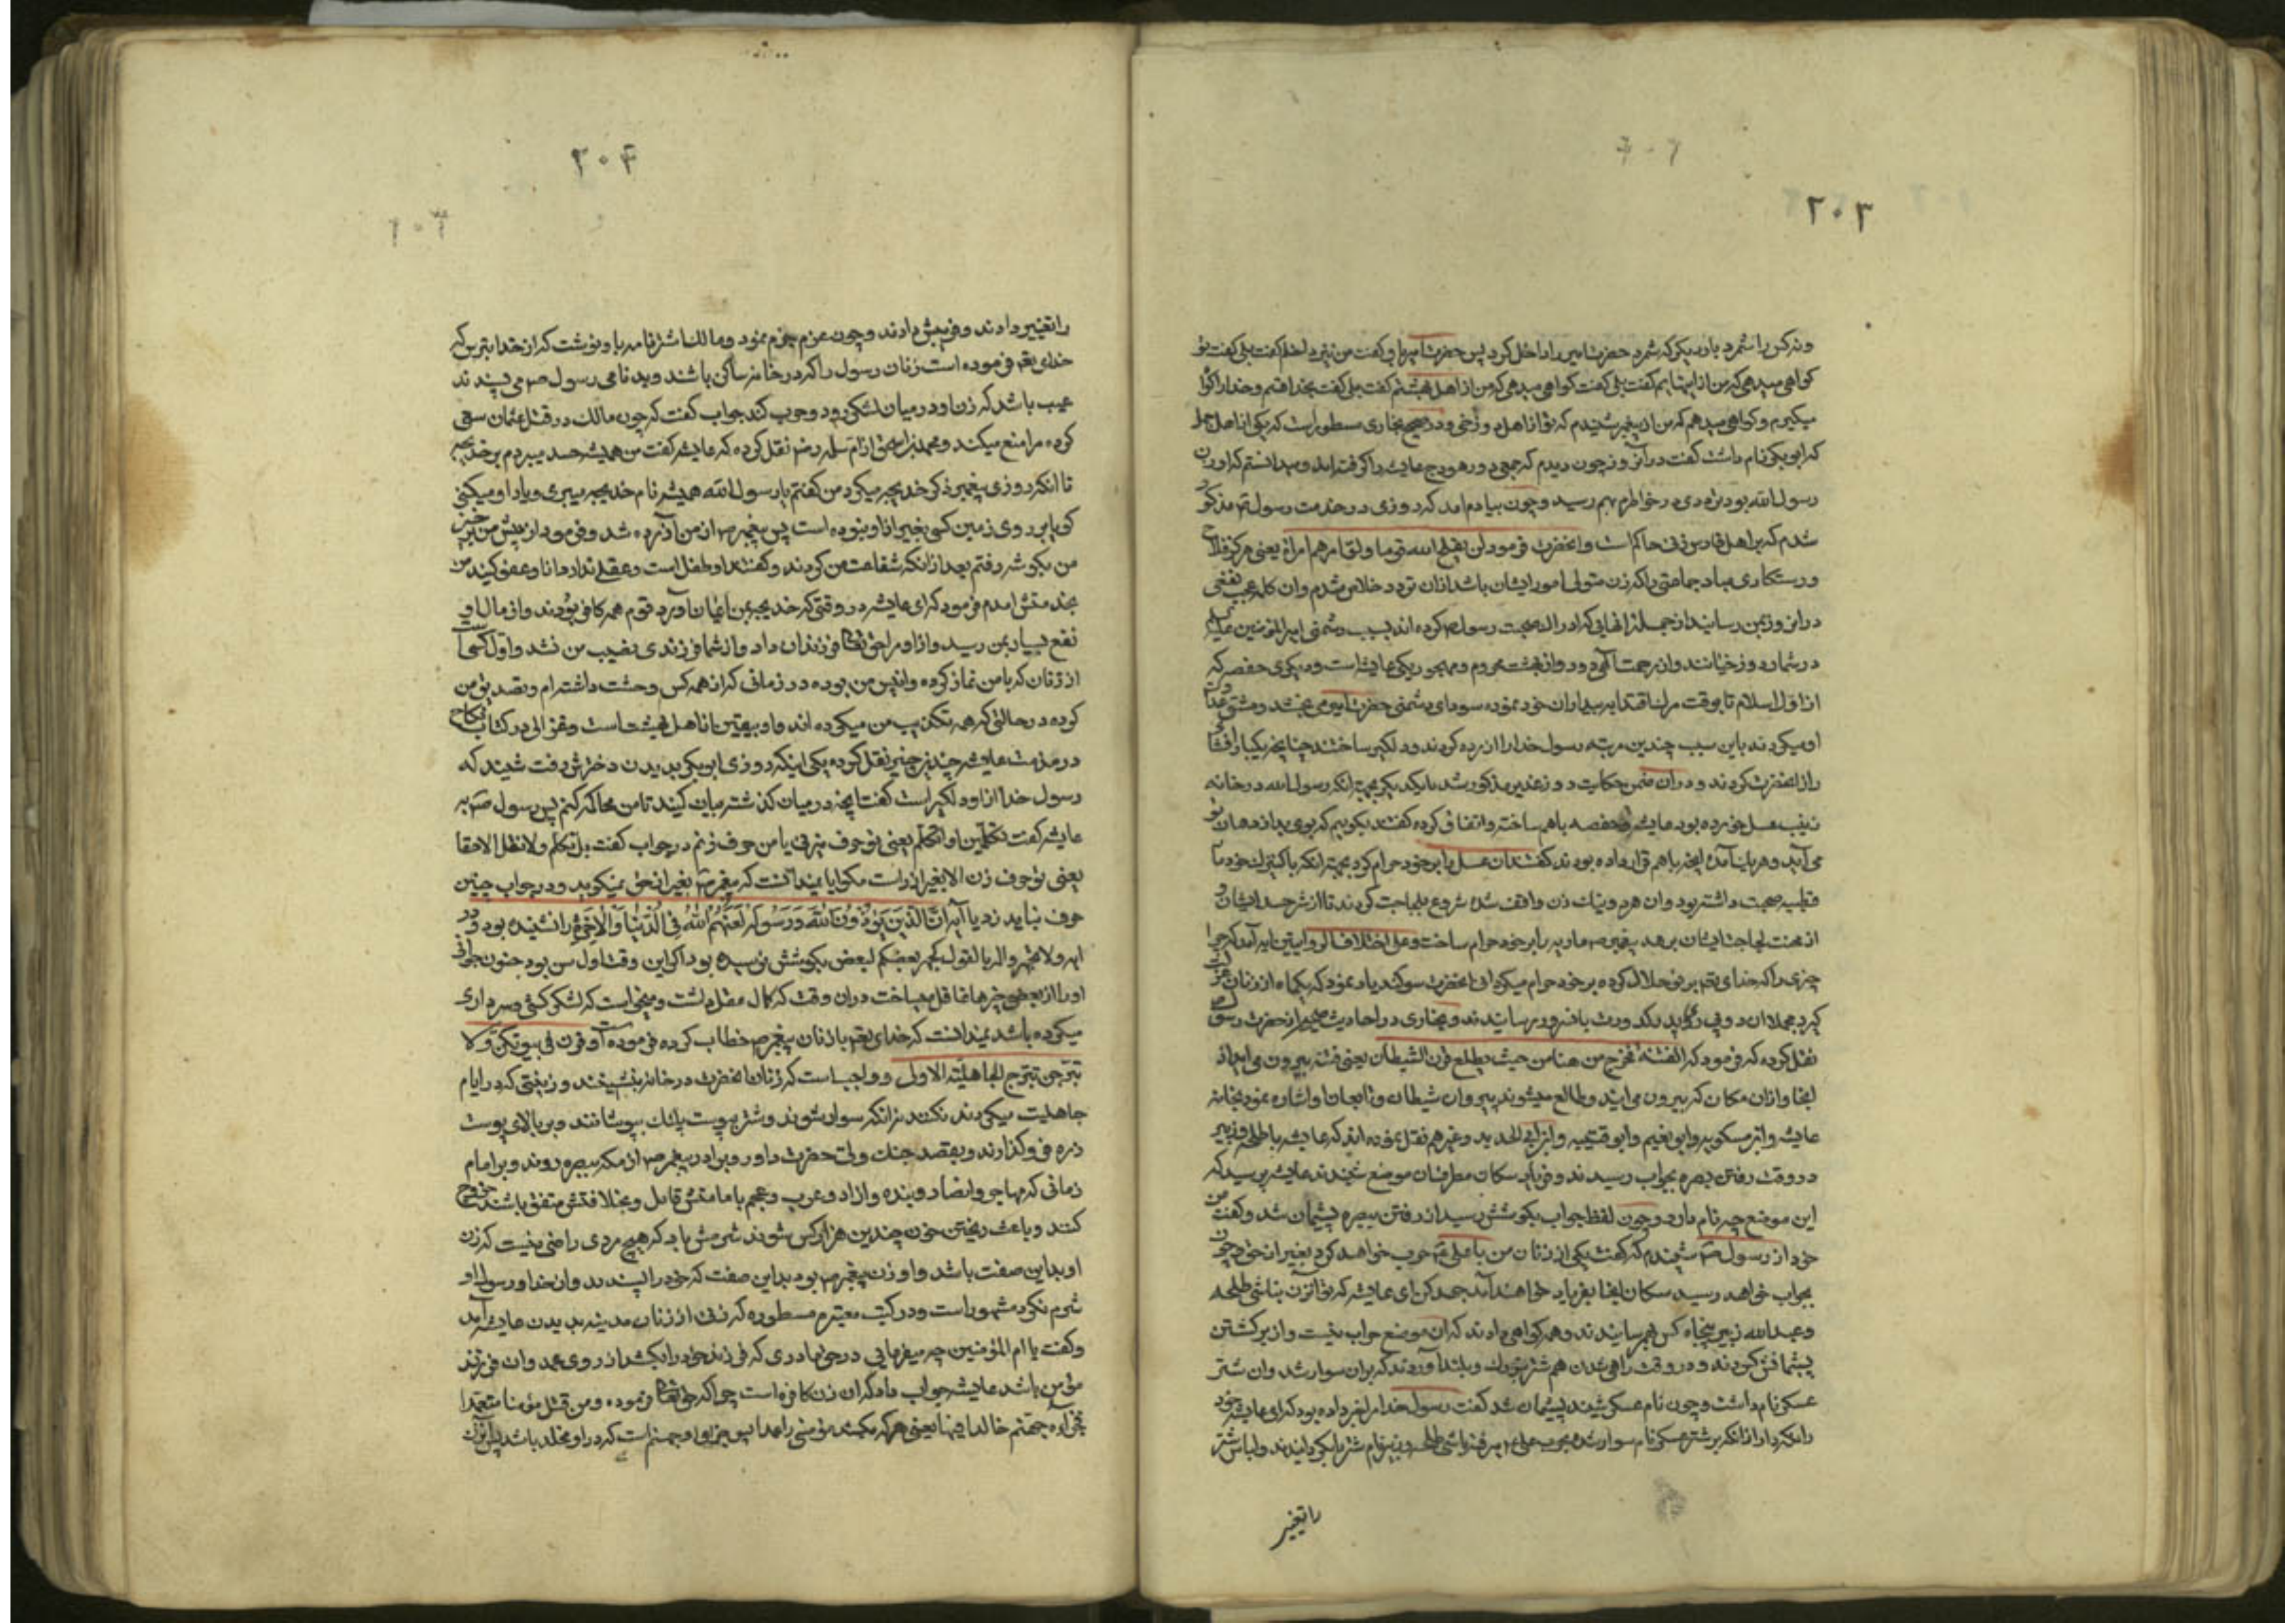 ۲۰۳
ونه کس را شمرد بار دیگر که شمرد حضرت امیر را داخل کرد پس حضرت امیر باو گفت من نیز داخلم گفت بلی گفت تو
کواهی میدهی که من از اینهایم گفت بلی گفت کواهی میدهی که من از اهل بهشتم گفت بلی گفت بخدا قسم وخدا را کواه
میکیرم و کواهی میدهم که من از پیغمبر شنیدم که تو از اهل دوزخی و در صحیح بخاری مسطور است که یکی از اهل جمل
که ابو بکره نام داشت گفت در آن روز چون دیدم که جمعی دور هودج عایشه را گرفته اند و میدانستم که او زن
رسول الله بود تردی در خاطرم بهم رسید و چون بیادم امد که روزی در خدمت رسول ص مذکور
شدم که بر اهل فارس زنی حاکم است و انحضرت فرمود لن یفلح الله قوما ولو امرهم امراة یعنی هرکز فلاح
ورستکاری مباد جماعتی را که زن متولی امور ایشان باشد ازان تردد خلاص شدم وان کله عجب نفعی
در ان روز بمن رسانید از جمله انهایی که ادراک صحبت رسول ص کرده اند بسبب دشمنی امیر المؤمنین علیه
در شمار دوزخیانند واز رحمت آلهی دور واز بهشت محروم ومهجور یکی عایشه است ودیکری حفصه که
از اول اسلام تا بوقت مرک اقتدا به پدران خود نموده سودای دشمنی حضرت امیر می پختند ومشق عداوت
او میکردند باین سبب چندین مرتبه رسول خدا را ازرده کردند ودلکیر ساختند چنانچه یکبار افشای
راز انحضرت کردند ودران ضمن حکایت روز غدیر مذکور شد بار دیکر بجهة انکه رسول الله در خانه
زینب عسل خورده بود عایشه و حفصه باهم ساخته واتفاق کرده گفتند بکوییم که بوی بد از دهان تو
می آید وهر یک انچه باهم قرار داده بودند گفتند ان عسل را بر خود حرام کرد بجهة انکه با کنیزک خود ماریه
قبطیه صحبت داشته بود وان هر دو نیک زن واقف شده شروع بلجاجت کردند تا از شر حسد ایشان و
از محنت لجاجت ایشان برهد پیغمبر ص ماریه را بر خود حرام ساخت وعلی اختلاف الروایتین ایه آمد که چرا
چیزی را که خدای تع بر تو حلال کرده بر خود حرام میکردانی انحضرت سوکند یاد نمود که یکماه از زنان عزلت
کیرد مجملا ان دو بی بی در احادیث صحیح از حضرت رسول
نقل کرده که فرمود که الفتنة تخرج من هنا من حیث یطلع قرن الشیطان یعنی فتنه بیرون می اید از
اینجا و ازان مکان که بیرون می ایند وطالع میشوند پیروان شیطان وتابعان او اشاره نمود بخانه
عایشه وابن مسکویه وابو نعیم وابو قتیبه وابن ابی الحدید وغیرهم نقل نموده اند که عایشه با طلحه وزبیر
در وقت رفتن بصره بحواب رسیدند و فریاد سکان مطرفان موضع شنیدند عایشه پرسید که
این موضع چه نام دارد وچون لفظ حواب بکوشش رسید از رفتن ببصره پشیمان شد وگفت من
خود از رسول ص شنیدم که گفت یکی از زنان من با علی ع حرب خواهد کرد بغیر از حق وچون
بحواب خواهد رسید سکان انجا بفریاد خواهند آمد جهد کن ای عایشه که تو آنزن نباشی طلحه
وعبد الله زبیر پنجاه کس بهم رسانیدند وهمه کواهی دادند که ان موضع حواب نیست واز برکشتن
پشیمانش کردند و در وقت راهی شدن هم شتر بزرک وبلند آوردند که بران سوار شد وان شتر
عسکر نام داشت وچون نام عسکر شنید پشیمان شد گفت رسول خدا مرا خبر داده بود که ای عایشه خود
را نکه دار از انکه بر شتر عسکر نام سوار شده بحرب علی ع بر طلحه وزبیر نام شتر را بکردانیدند ولباس شتر
را تغییر
۲۰۴
را تغییر دادند و فریبش دادند وچون عزم جزم نمود ومالک اشتر نامه باو نوشت که از خدا بترس که
خدای تع فرموده است زنان رسول را که در خانه ساکن باشند وبدنامی رسول ص می پسندند
عیب باشد که زن او در میان لشکر رود وحرب کند جواب گفت که چون مالک در قتل عثمان سعی
کرده مرا منع میکند ومحمد بن اسحق از ام سلمه رض نقل کرده که عایشه گفت من همیشه حسد میبردم بر خدیجه
تا انکه روزی پیغمبر ذکر خدیجه میکرد من گفتم یا رسول الله همیشه نام خدیجه میبری ویاد او میکنی
کویا بر روی زمین کسی بغیر از او نبوده است پس پیغمبر ص از من آزرده شد وفرمود از پیش من برخیز
من بکوشه رفتم بعد از انکه شفاعت من کردند وگفتند او طفل است وعقلی ندارد مانا وعفو کنید من
بخدمتش امدم فرمود که ای عایشه در وقتی که خدیجه بمن ایمان آورد قوم همه کافر بودند واز مال او
نفع بسیار بمن رسید واز او مرا حق تعالی فرزندان داد واز شما فرزندی نصیب من نشد واول کسی است
از زنان که با من نماز کرده وانیس من بوده در زمانی که از همه کس وحشت داشته ام وتصدیق من
کرده در حالتی که همه تکذیب من میکرده اند واو بهترین زنان اهل بهشت است وغزالی در کتاب نکاح
در مذمت عایشه چند چیز نقل کرده یکی اینکه روزی ابو بکر بدیدن دخترش رفت شنید که
رسول خدا از او دلکیر است گفت انچه در میان کذشته بیان کنید تا من محاکمه کنم پس رسول ص به
عایشه گفت تکلمین او اتکلم یعنی تو حرف میزنی یا من حرف زنم در جواب گفت بل تکلم ولا تقل الا حقا
یعنی تو حرف زن الا بغیر از راست مکو ایا نمیدانست که پیغمبر ص بغیر از حق نمیکوید ودر جواب چنین
حرف نباید زد یا آیه اِنَّ الَّذینَ یُؤذُونَ اللهَ وَرَسُولَهُ لَعَنَهُمُ اللهُ فِی الدُّنیا وَالآخِرَةِ را نشنیده بود و در
ایه ولا تجهروا له بالقول کجهر بعضکم لبعض بکوشش نرسیده بود اکر این وقت اول سن بود جنون جوانی
او را از بعضی چیزها غافل میساخت دران وقت که کمال عقل داشت ومیخواست که لشکر کشی وسرداری
میکرده باشد نمیدانست که خدای تع با زنان پیغمبر ص خطاب کرده فرموده است وقرن فی بیوتکن ولا
تبرجن تبرج الجاهلیة الاولی و واجبست که زنان انحضرت در خانه بنشینند و زینتی که در ایام
جاهلیت میکردند نکنند نه انکه سوار شوند وشتر بپوست پلنک بپوشانند وبر بالای پوست
زره فرو کذارند وبقصد جنک ولی حضرت داور وبرادر پیغمبر ص از مکه ببصره روند وبر امام
زمانی که مهاجر وانصار وبنده وازاد وعرب وعجم بامامتش قائل وبخلافتش متفق باشند خروج
کنند وباعث ریختن خون چندین هزار کس شوند شرمش باد که هیچ مردی راضی نیست که زن
او بداین صفت باشد واو زن پیغمبر ص بود بداین صفت که خود را پسندید وان خدا ورسول او
شرم نکرد مشهور است ودر کتب معتبره مسطوره که زنی از زنان مدینه بدیدن عایشه آمد
وگفت یا ام المؤمنین چه میفرمایی در حق مادری که فرزند خود را بکشد از روی عمد وان فرزند
مؤمن باشد عایشه جواب داد که ان زن کافره است چرا که حق تعالی فرموده ومن قتل مؤمنا متعمدا
فجزاؤه جهنم خالدا فیها یعنی هر که بکشد مؤمنی را عمدا پس جزای او جهنم است که در او مخلد باشد پس آنزن